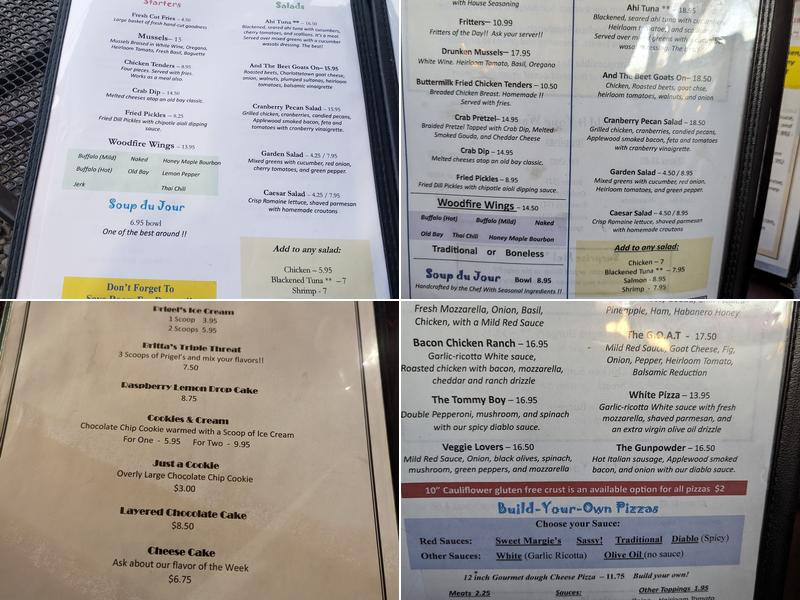 Starters
Fresh Cut Fries – 4.50
Large basket of fresh hand-cut goodness
Mussels– 13
Mussels Braised in White Wine, Oregano,
Heirloom Tomato, Fresh Basil, Baguette
Chicken Tenders – 8.95
Four pieces. Served with fries.
Works as a meal also.
Crab Dip – 14.50
Melted cheeses atop an old bay classic.
Fried Pickles – 8.25
Fried Dill Pickles with chipotle aioli dipping
sauce.
Woodfire Wings – 13.95
Buffalo (Mild) Naked Honey Maple Bourbon
Buffalo (Hot) Old Bay Lemon Pepper
Jerk Thai Chili
Soup du Jour
6.95 bowl
One of the best around !!
Don't Forget To
Salads
Ahi Tuna ** – 16.50
Blackened, seared ahi tuna with cucumbers,
cherry tomatoes, and scallions, it's a meal.
Served over mixed greens with a cucumber
wasabi dressing. The best!
And The Beet Goats On– 15.95
Roasted beets, Charlottetown goat cheese,
onion, walnuts, plumped sultanas, heirloom
tomatoes, balsamic vinaigrette
Cranberry Pecan Salad – 15.95
Grilled chicken, cranberries, candied pecans,
Applewood smoked bacon, feta and
tomatoes with cranberry vinaigrette.
Garden Salad – 4.25 / 7.95
Mixed greens with cucumber, red onion,
cherry tomatoes, and green pepper.
Caesar Salad – 4.25 / 7.95
Crisp Romaine lettuce, shaved parmesan
with homemade croutons
Add to any salad:
Chicken – 5.95
Blackened Tuna ** – 7
Shrimp - 7
with House Seasoning
Fritters– 10.99
Fritters of the Day!! Ask your server!!
Drunken Mussels– 17.95
White Wine. Heirloom Tomato, Basil, Oregano
Buttermilk Fried Chicken Tenders – 10.50
Breaded Chicken Breast. Homemade !!
Served with fries.
Crab Pretzel– 14.95
Braided Pretzel Topped with Crab Dip, Melted
Smoked Gouda, and Cheddar Cheese
Crab Dip – 14.95
Melted cheeses atop an old bay classic.
Fried Pickles – 8.95
Fried Dill Pickles with chipotle aioli dipping sauce.
Woodfire Wings – 14.50
Buffalo (Hot) Buffalo (Mild) Naked
Old Bay Thai Chili Honey Maple Bourbon
Traditional or Boneless
Soup du Jour Bowl 8.95
Handcrafted by the Chef With Seasonal Ingredients !!
Ahi Tuna ** – 18.95
Blackened, seared ahi tuna with
Heirloom and scallions
Served over mixed greens with
wasabi dressing. The
And The Beet Goats On– 18.50
Chicken, Roasted beets, goat chse,
heirloom tomatoes, walnuts, and onion
Cranberry Pecan Salad – 18.50
Grilled chicken, cranberries, candied pecans,
Applewood smoked bacon, feta & tomatoes
with cranberry vinaigrette.
Garden Salad – 4.50 / 8.95
Mixed greens with cucumber, red onion.
Heirloom tomatoes, and green pepper.
Caesar Salad – 4.50 / 8.95
Crisp Romaine lettuce, shaved parmesan
with homemade croutons
Add to any salad:
Chicken – 7
Blackened Tuna ** – 7.95
Salmon - 8.95
Shrimp - 7.95
Prigel's Ice Cream
1 Scoop 3.95
2 Scoops 5.95
Britta's Triple Threat
3 Scoops of Prigel's and mix your flavors!!
7.50
Raspberry Lemon Drop Cake
8.75
Cookies & Cream
Chocolate Chip Cookie warmed with a Scoop of Ice Cream
For One - 5.95 For Two - 9.95
Just a Cookie
Overly Large Chocolate Chip Cookie
$3.00
Layered Chocolate Cake
$8.50
Cheese Cake
Ask about our flavor of the Week
$6.75
Fresh Mozzarella, Onion, Basil,
Chicken, with a Mild Red Sauce
Bacon Chicken Ranch – 16.95
Garlic-ricotta White sauce,
Roasted chicken with bacon, mozzarella,
cheddar and ranch drizzle
The Tommy Boy – 16.95
Double Pepperoni, mushroom, and spinach
with our spicy diablo sauce.
Veggie Lovers – 16.50
Mild Red Sauce, Onion, black olives, spinach,
mushroom, green peppers, and mozzarella
Pineapple, Ham, Habanero Honey
The G.O.A.T - 17.50
Mild Red Sauce, Goat Cheese, Fig,
Onion, Pepper, Heirloom Tomato,
Balsamic Reduction
White Pizza – 13.95
Garlic-ricotta White sauce with fresh
mozzarella, shaved parmesan, and
an extra virgin olive oil drizzle
The Gunpowder – 16.50
Hot Italian sausage, Applewood smoked
bacon, and onion with our diablo sauce.
10" Cauliflower gluten free crust is an available option for all pizzas $2
Build-Your-Own Pizzas
Choose your Sauce:
Red Sauces: Sweet Margie's Sassy! Traditional Diablo (Spicy)
Other Sauces: White (Garlic Ricotta) Olive Oil (no sauce)
12 inch Gourmet dough Cheese Pizza – 11.75 Build your own!
Meats 2.25 Sauces: Other Toppings 1.95